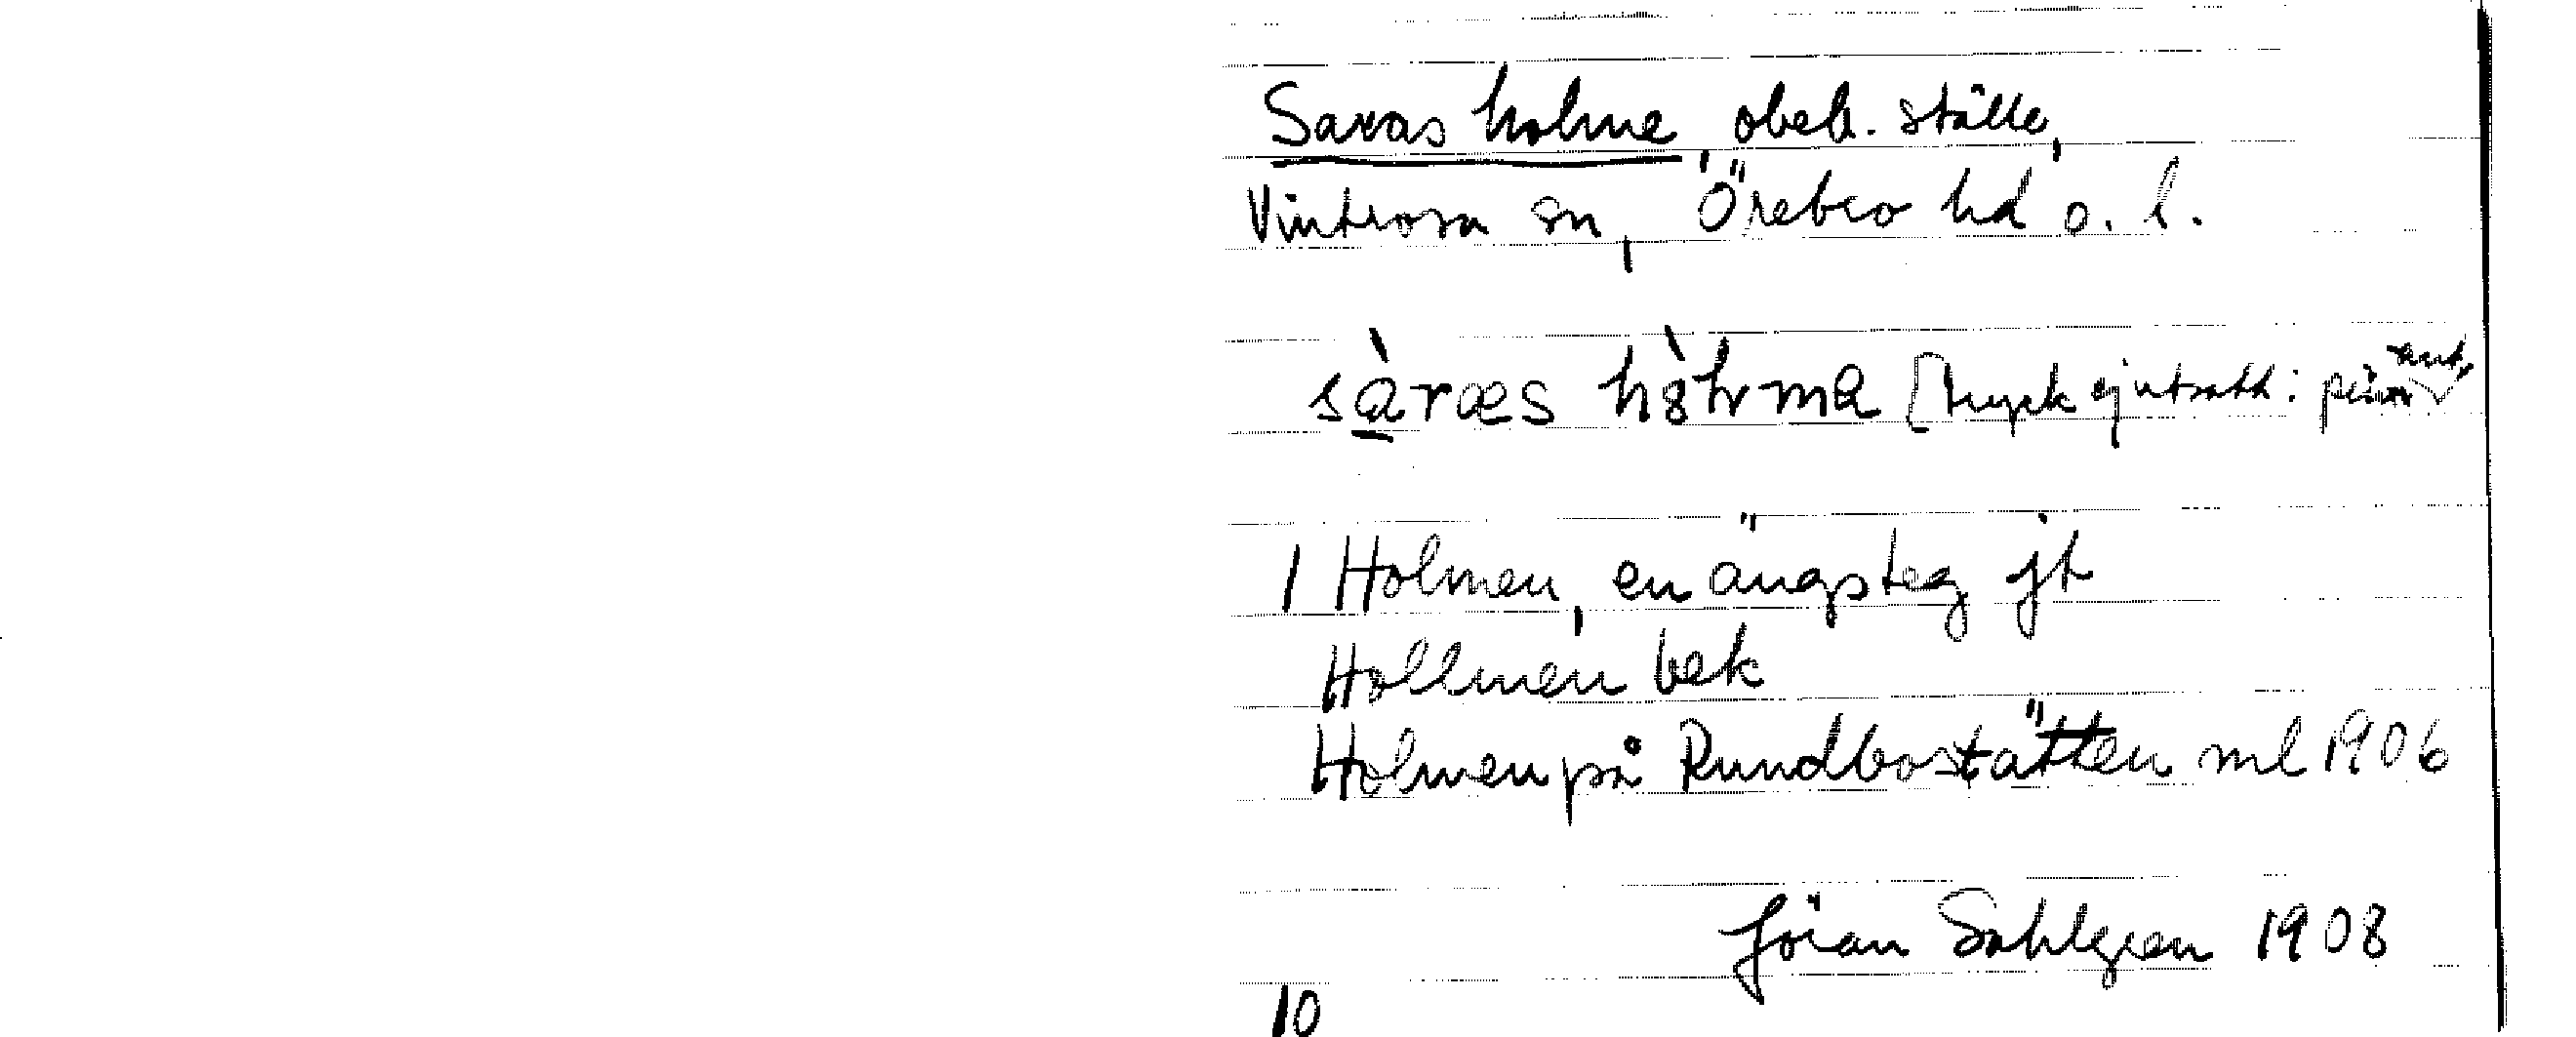 Saras holme, obeb. ställe,
Vintrosa sn, Örebro hd o. l.
sàræs hòhrma [tryck ej utsatt:
1 Holmen, en ängsteg jt
Hollmen bek
Holmen på Rundbostätten ml 1906
Jöran Sahlgren 1908
10